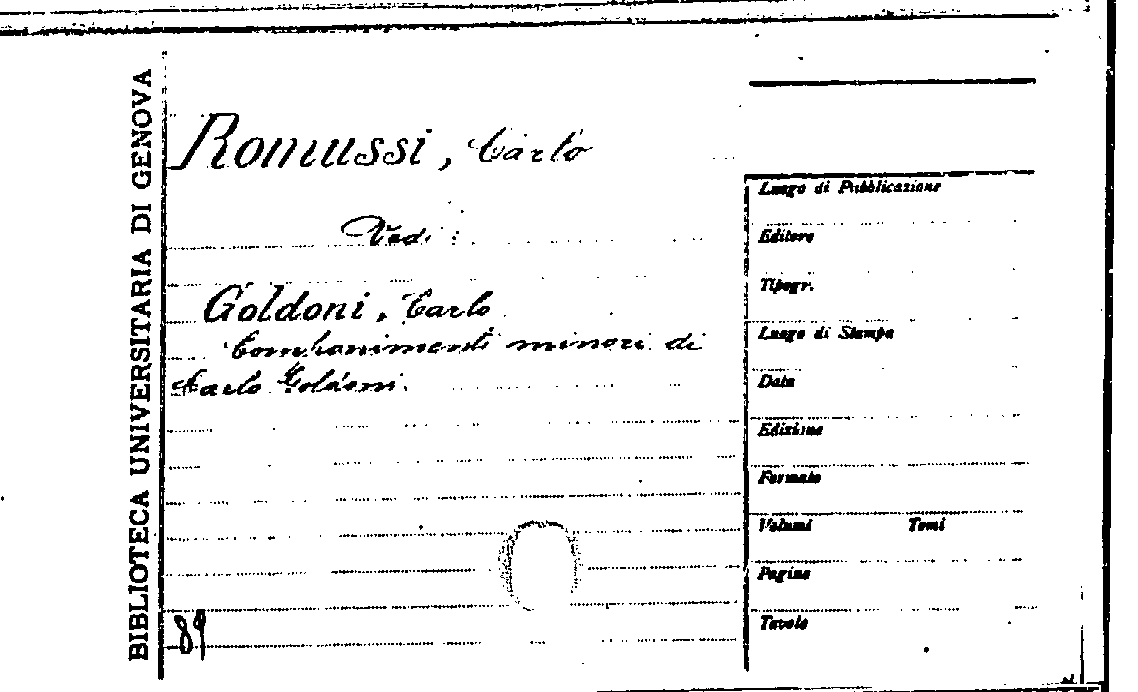 BIBLIOTECA UNIVERSITARIA DI GENOVA
Romussi, Carlo
Vedi :
Goldoni, Carlo
Componimenti minori di
Carlo Goldoni.
89
Luogo di Pubblicazione
Editore
Tipogr.
Luogo di Stampa
Data
Edizione
Formato
Volumi Tomi
Pagine
Tavole